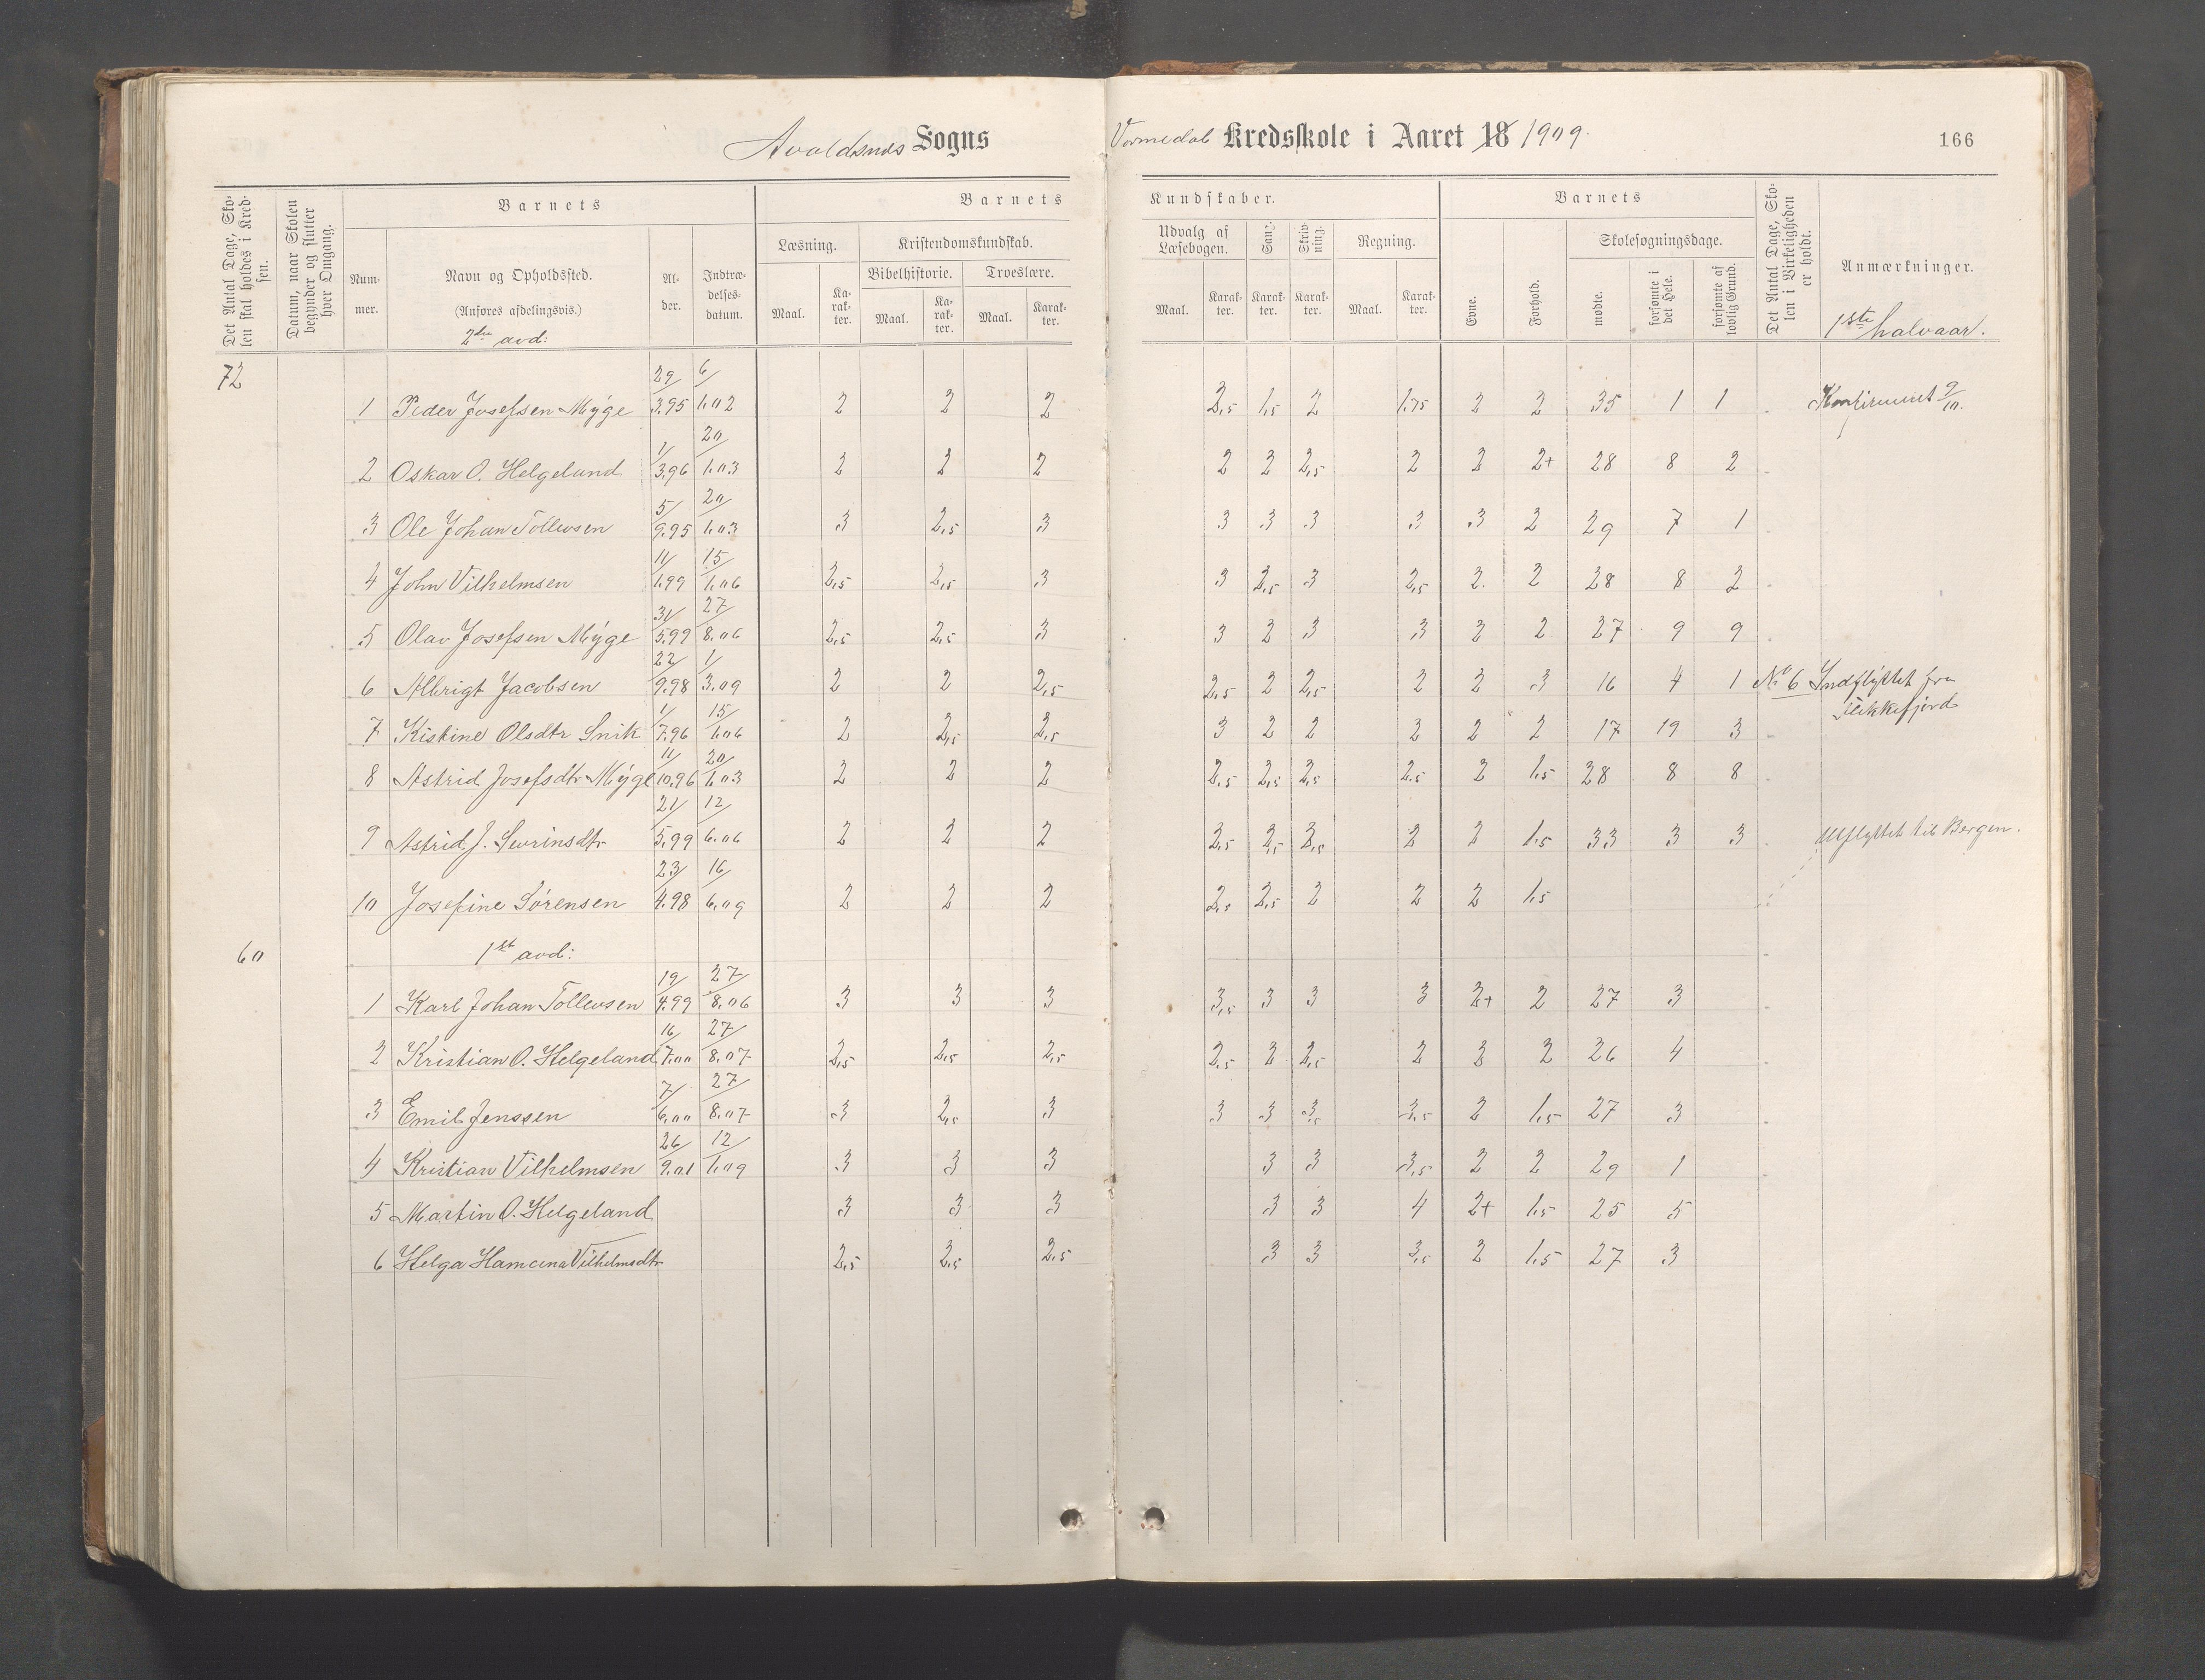 Avaldsnes Sogns Vormedal Kredsskole i Aaret 18 1909. 166
Det Antal Dage, Skolen skal holdes i Kredsen.
Datum, naar Skolen begynder og slutter hver Omgang.
Barnets
Nummer.
Navn og Opholdssted.
(Anføres afdelingsvis.)
2den avd:
Alder.
Indtrædelsesdatum.
Barnets Kundskaber.
Læsning. Kristendomskundskab. Udvalg af Læsebogen. Sang. Skrivning. Regning.
Bibelhistorie. Troeslære.
Maal. Karakter. Maal. Karakter. Maal. Karakter. Maal. Karakter. Karakter. Karakter. Maal. Karakter.
Barnets
Evne. Forhold. Skolesøgningsdage.
mødte. forsømte i det Hele. forsømte af lovlig Grund.
Det Antal Dage, Skolen i Virkeligheden er holdt.
Anmærkninger.
1ste halvaar.
72
1 Peder Josefsen Myge 29/3.95 6/1.02 2 2 2 2,5 1,5 2 1.75 2 2 35 1 1 Konfirmeret 9/10.
2 Oskar O. Helgeland 1/3.96 20/1.03 2 2 2 2 2 2,5 2 2 2+ 28 8 2
3 Ole Johan Tollevsen 5/9.95 20/1.03 3 2,5 3 3 3 3 3 3 2 29 7 1
4 John Vilhelmsen 11/1.99 15/1.06 2,5 2,5 3 3 2,5 3 2,5 2 2 28 8 2
5 Olav Josefsen Myge 31/5.99 27/8.06 2,5 2,5 3 3 2 3 3 2 2 27 9 9
6 Albrigt Jacobsen 22/9.98 1/3.09 2 2 2,5 2,5 2 2,5 2 2 3 16 4 1 No 6 Indflyttet fra
Flekkefjord
7 Kistine Olsdtr Snik 1/7.96 15/1.06 2 2,5 2,5 3 2 2 2 2 2 17 19 3
8 Astrid Josefsdtr Myge 11/10.96 20/1.03 2 2 2 2,5 2,5 2,5 2,5 2 1,5 28 8 8
9 Astrid J. Sevrinsdtr 21/5.99 12/6.06 2 2 2 2,5 2,5 2,5 2 2 1,5 33 3 3 Utflyttet til Bergen.
10 Josefine Sørensen 23/4.98 16/6.09 2 2 2 2,5 2,5 2 2 2 1,5
60 1st avd:
1 Karl Johan Tollevsen 19/4.99 27/8.06 3 3 3 3,5 3 3 3 2+ 2 27 3
2 Kristian O. Helgeland 16/7.00 27/8.07 2,5 2,5 2,5 2,5 2 2,5 2 2 2 26 4
3 Emil Jenssen 7/6.00 27/8.07 3 2,5 3 3 3 3,5 3,5 2 1,5 27 3
4 Kristian Vilhelmsen 26/9.01 12/1.09 3 3 3 3 3 3,5 2 2 29 1
5 Martin O. Helgeland 3 3 3 3 3 4 2+ 1,5 25 5
6 Helga Hamcina Vilhelmsdtr 2,5 2,5 2,5 3 3 3,5 2 1,5 27 3